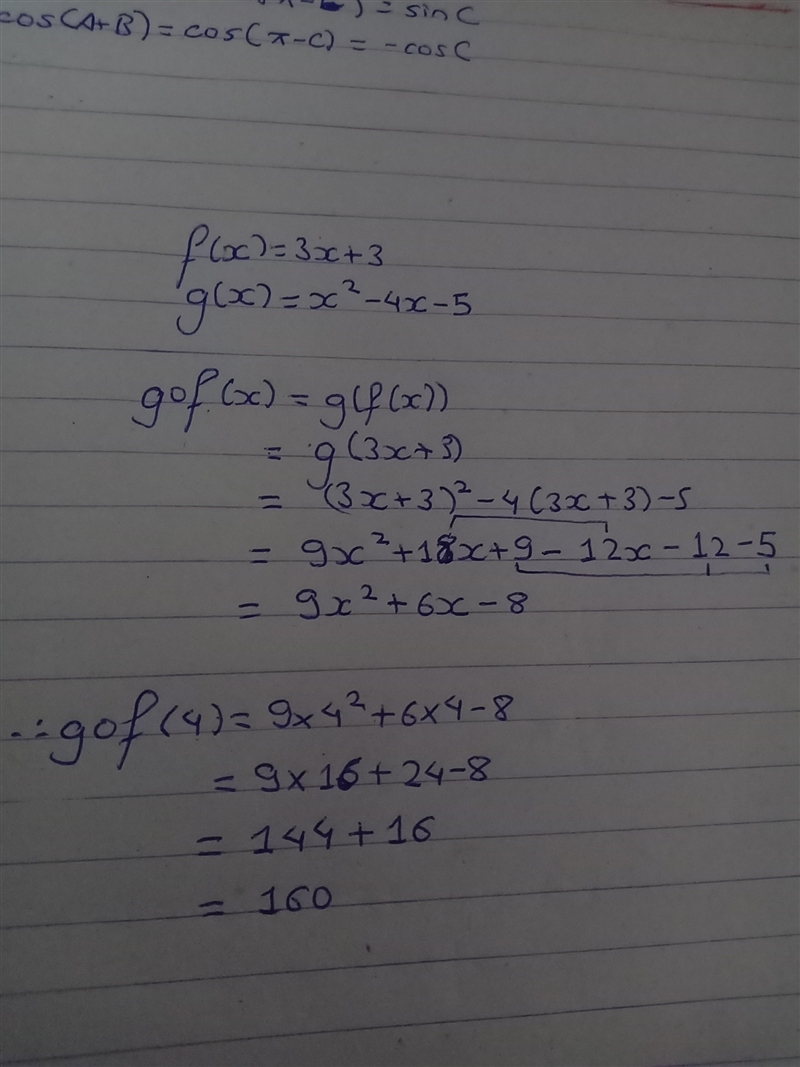 ) = sin C
cos(A+B) = cos(π-C) = -cos C
f(x) = 3x+3
g(x) = x² - 4x - 5
gof(x) = g(f(x))
= g(3x+3)
= (3x+3)² - 4(3x+3) - 5
= 9x² + 18x + 9 - 12x - 12 - 5
= 9x² + 6x - 8
∴ gof(4) = 9×4² + 6×4 - 8
= 9×16 + 24 - 8
= 144 + 16
= 160